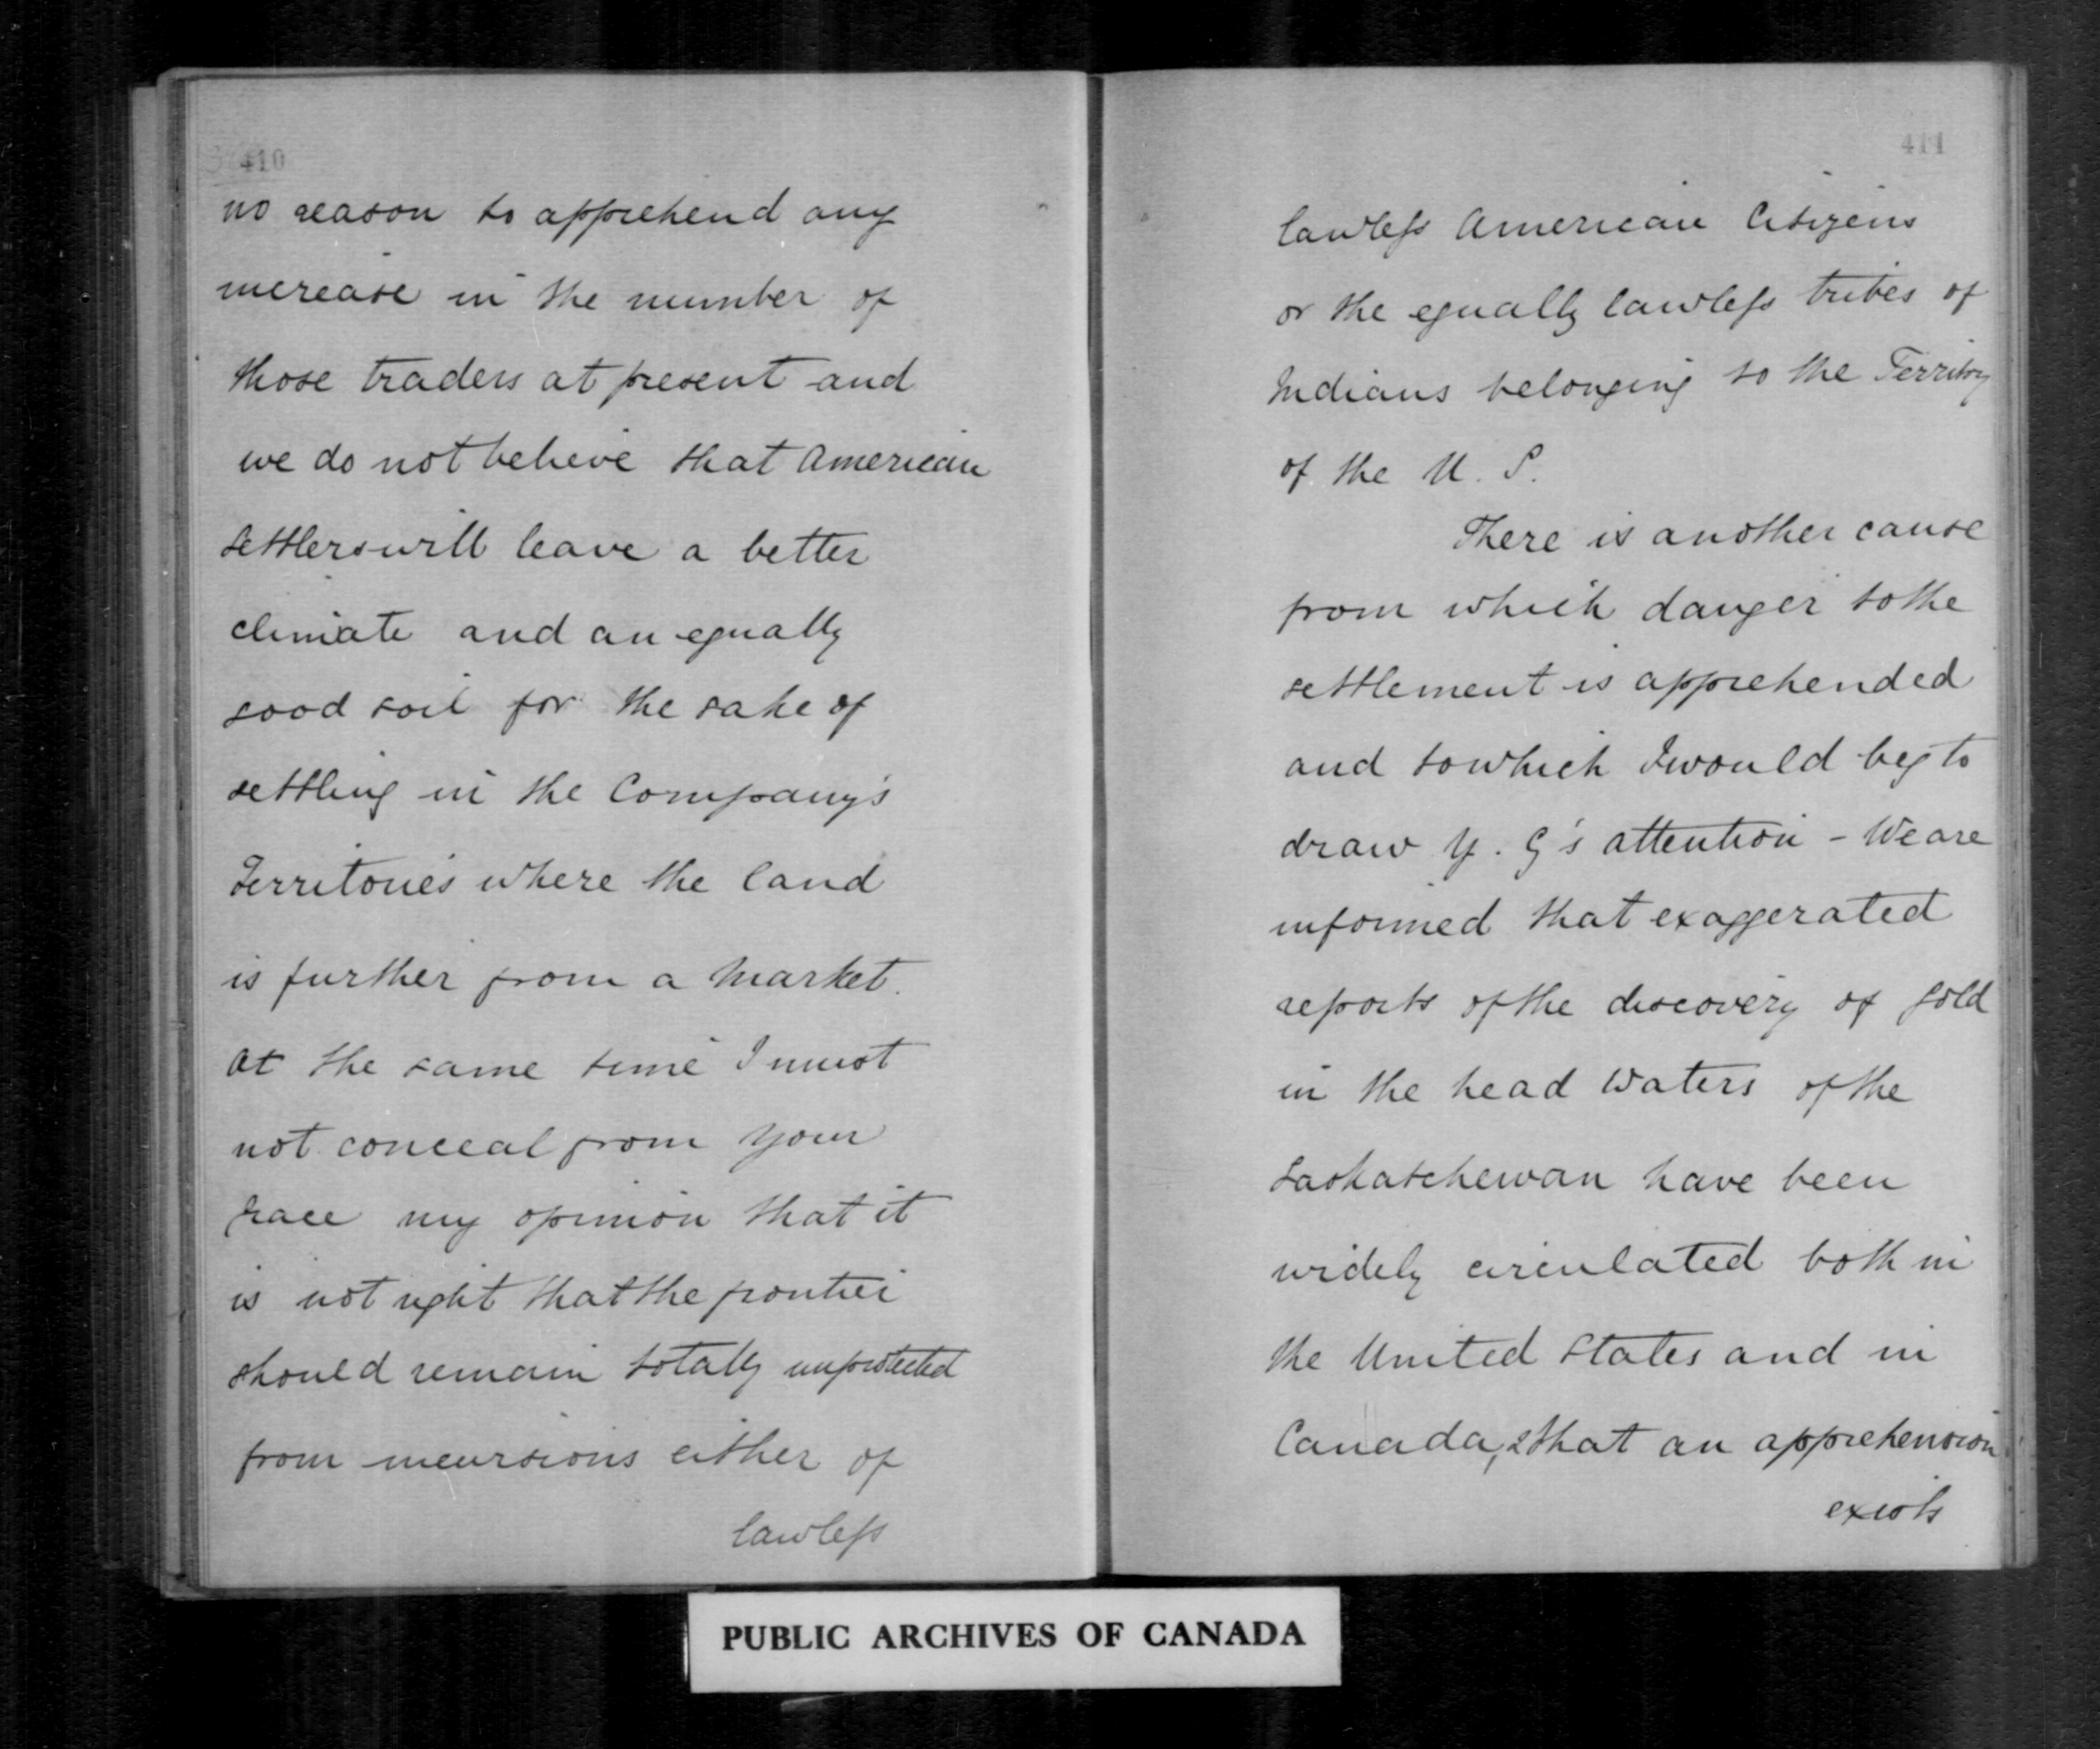 410
no reason to apprehend any
increase in the number of
those traders at present and
we do not believe that American
Settlers will leave a better
climate and an equally
good soil for the sake of
settling in the Company's
Territories where the land
is further from a Market.
At the same time I must
not conceal from Your
Grace my opinion that it
is not right that the frontier
should remain totally unprotected
from incursions either of
lawless
411
lawless American Citizens
or the equally lawless tribes of
Indians belonging to the Territory
of the U. S.
There is another cause
from which danger to the
settlement is apprehended
and to which I would beg to
draw Y. G's attention - We are
informed that exaggerated
reports of the discovery of gold
in the head waters of the
Saskatchewan have been
widely circulated both in
the United States and in
Canada, & that an apprehension
exists
PUBLIC ARCHIVES OF CANADA